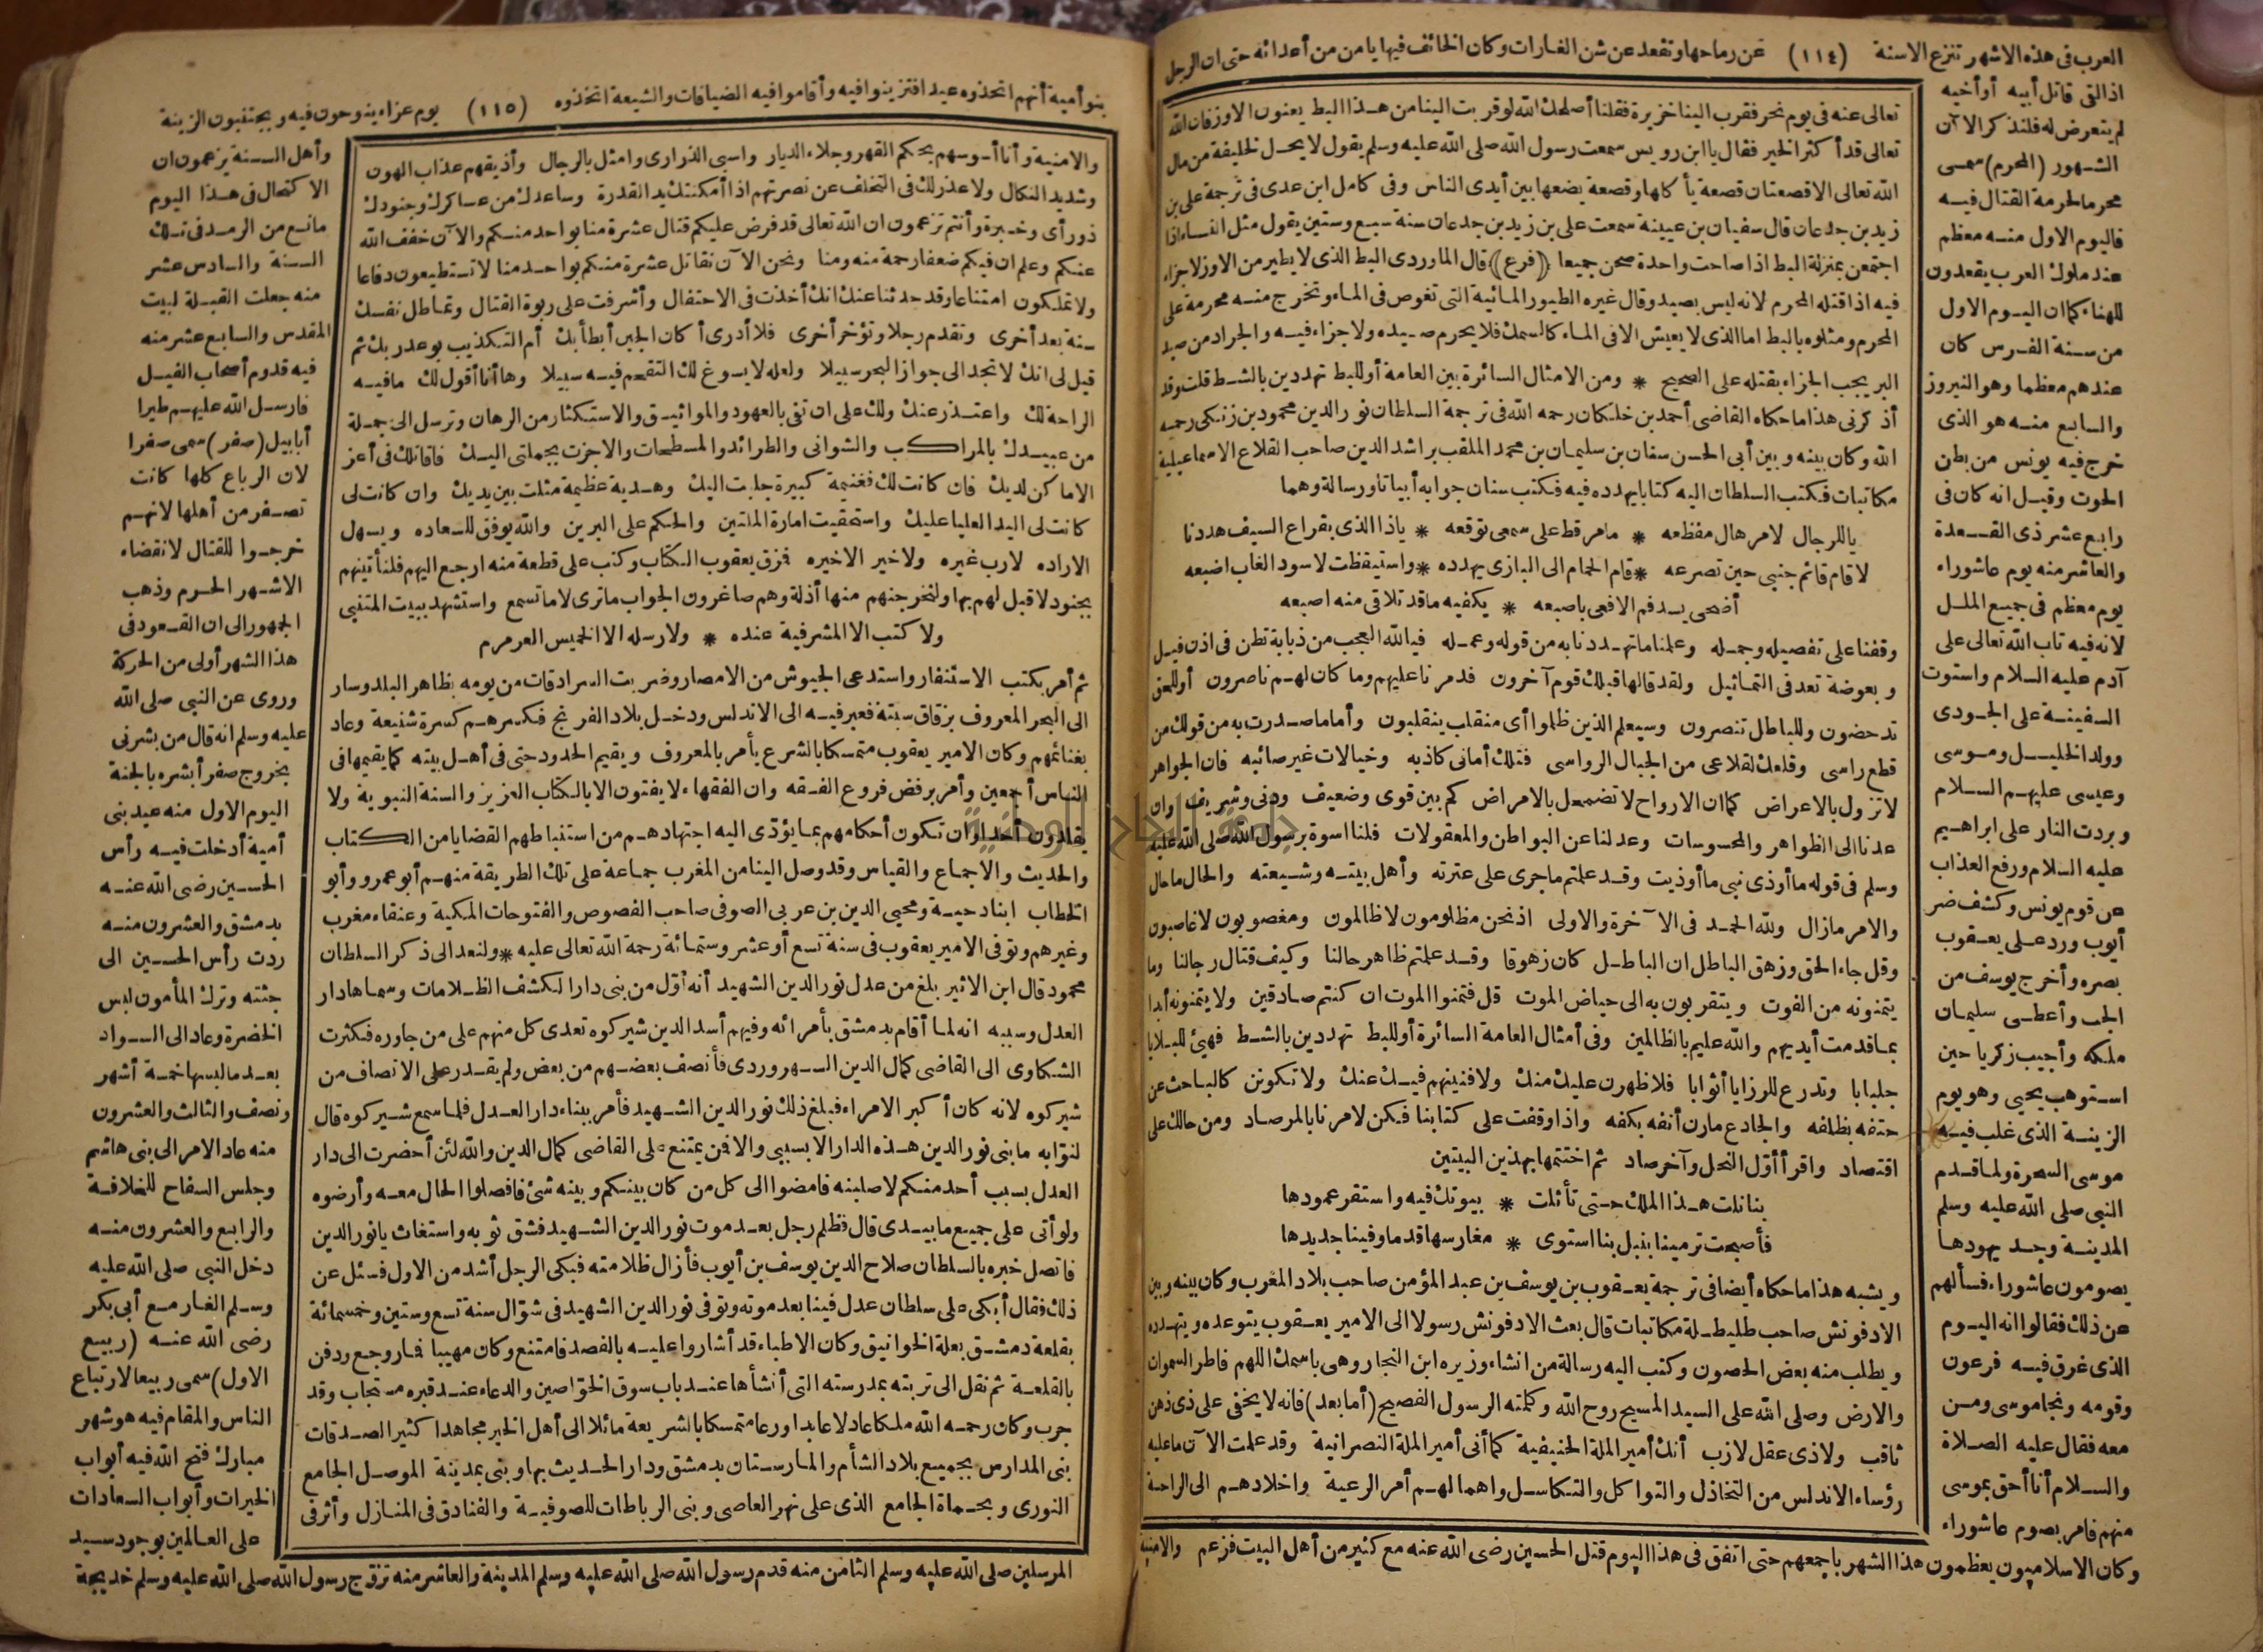 العرب فى هذه الاشهر تنزع الاسنة (١١٤) عن رماحها وتقعد عن شن الغارات وكان الخائف فيها يأمن من أعدائه حتى ان الرجل
اذا لقى قاتل أبيه أو أخيه
لم يتعرض له فلنذكر الآن
الشهور (المحرم) سمى
محرما لحرمة القتال فيه
فاليوم الاول منه معظم
عند ملوك العرب يقعدون
للهناء كما ان اليوم الاول
من سنة الفرس كان
عندهم معظما وهو النيروز
والسابع منه هو الذى
خرج فيه يونس من بطن
الحوت وقيل انه كان فى
رابع عشر ذى القعدة
والعاشر منه يوم عاشوراء
يوم معظم فى جميع الملل
لانه فيه تاب الله تعالى على
آدم عليه السلام واستوت
السفينة على الجودى
وولد الخليل وموسى
وعيسى عليهم السلام
وبردت النار على ابراهيم
عليه السلام ورفع العذاب
عن قوم يونس وكشف ضر
أيوب ورد على يعقوب
بصره وأخرج يوسف من
الجب وأعطى سليمان
ملكه وأجيب زكريا حين
استوهب يحيى وهو يوم
الزينة الذى غلب فيه
موسى السحرة ولما قدم
النبى صلى الله عليه وسلم
المدينة وجد يهودها
يصومون عاشوراء فسألهم
عن ذلك فقالوا انه اليوم
الذى غرق فيه فرعون
وقومه ونجا موسى ومن
معه فقال عليه الصلاة
والسلام أنا أحق بموسى
منهم فامر بصوم عاشوراء
وكان الاسلاميون يعظمون هذا الشهر باجمعهم حتى اتفق فى هذا اليوم قتل الحسين رضى الله عنه مع كثير من أهل البيت فزعم
تعالى عنه فى يوم نحر فقرب الينا خزيرة فقلنا أصلحك الله لو قربت الينا من هذا البط يعنون الاوز فان الله
تعالى قد أكثر الخير فقال يا ابن رويس سمعت رسول الله صلى الله عليه وسلم يقول لا يحل لخليفة من مال
الله تعالى الا قصعتان قصعة يأكلها وقصعة يضعها بين أيدى الناس وفى كامل ابن عدى فى ترجمة على بن
زيد بن جدعان قال سفيان بن عيينة سمعت على بن زيد بن جدعان سنة سبع وستين يقول مثل النساء اذا
اجتمعن بمنزلة البط اذا صاحت واحدة صحن جميعا (فرع) قال الماوردى البط الذى لا يطير من الاوز لا جزاء
فيه اذا قتله المحرم لانه ليس بصيد وقال غيره الطيور المائية التى تغوص فى الماء وتخرج منه محرمة على
المحرم ومثلوه بالبط اما الذى لا يعيش الا فى الماء كالسمك فلا يحرم صيده ولا جزاء فيه والجراد من صيد
البر يجب الجزاء بقتله على الصحيح * ومن الامثال السائرة بين العامة أو للبط تهددين بالشط قلت وقد
أذكرنى هذا ما حكاه القاضى أحمد بن خلكان رحمه الله فى ترجمة السلطان نور الدين محمود بن زنكى رحمه
الله وكان بينه وبين أبى الحسن سنان بن سليمان بن محمد الملقب براشد الدين صاحب القلاع الاسماعيلية
مكاتبات فكتب السلطان اليه كتابا يهدده فيه فكتب سنان جوابه أبياتا ورسالة وهما
يا للرجال لامر هال مفظعه * ما مر قط على سمعى توقعه * ياذا الذى بقراع السيف هددنا
لا قام قائم جنبى حين تصرعه * قام الحمام الى البازى يهدده * واستيقظت لاسود الغاب اضبعه
أضحى يسد فم الافعى باصبعه * يكفيه ما قد تلاقى منه اصبعه
وقفنا على تفصيله وجمله وعلمنا ما تهددنا به من قوله وعمله فيالله العجب من ذبابة تطن فى اذن فيل
وبعوضة تعد فى التماثيل ولقد قالها قبلك قوم آخرون فدمرنا عليهم وما كان لهم ناصرون أو للحق
تدحضون وللباطل تنصرون وسيعلم الذين ظلموا أى منقلب ينقلبون وأما ما صدرت به من قولك من
قطع راسى وقلعك لقلاعى من الجبال الرواسى فتلك أمانى كاذبه وخيالات غير صائبه فان الجواهر
لا تزول بالاعراض كما ان الارواح لا تضمحل بالامراض كم بين قوى وضعيف ودنى وشريف وان
عدنا الى الظواهر والمحسوسات وعدلنا عن البواطن والمعقولات فلنا اسوة برسول الله صلى الله عليه
وسلم فى قوله ما أوذى نبى ما أوذيت وقد علمتم ما جرى على عترته وأهل بيته وشيعته والحال ما حال
والامر ما زال ولله الحمد فى الآخرة والاولى اذ نحن مظلومون لا ظالمون ومغصوبون لا غاصبون
وقل جاء الحق وزهق الباطل ان الباطل كان زهوقا وقد علمتم ظاهر حالنا وكيف قتال رجالنا وما
يتمنونه من الفوت ويتقربون به الى حياض الموت قل فتمنوا الموت ان كنتم صادقين ولا يتمنونه أبدا
بما قدمت أيديهم والله عليم بالظالمين وفى أمثال العامة السائرة أو للبط تهددين بالشط فهيئ للبلايا
جلبابا وتدرع للرزايا أثوابا فلا ظهرن عليك منك ولا فنينهم فيك عنك ولا تكونن كالباحث عن
حتفه بظلفه والجادع مارن أنفه بكفه واذا وقفت على كتابنا فكن لامرنا بالمرصاد ومن حالك على
اقتصاد واقرأ أول النحل وآخر صاد ثم اختتمها بهذين البيتين
بنا نلت هذا الملك حتى تأثلت * بيوتك فيه واستقر عمودها
فأصبحت ترمينا بنبل بنا استوى * مغارسها قدما وفينا جديدها
ويشبه هذا ما حكاه أيضا فى ترجمة يعقوب بن يوسف بن عبد المؤمن صاحب بلاد المغرب وكان بينه وبين
الادفونش صاحب طليطلة مكاتبات قال بعث الادفونش رسولا الى الامير يعقوب يتوعده ويتهدده
ويطلب منه بعض الحصون وكتب اليه رسالة من انشاء وزيره ابن النجار وهى باسمك اللهم فاطر السموات
والارض وصلى الله على السيد المسيح روح الله وكلمته الرسول الفصيح (أما بعد) فانه لا يخفى على ذى ذهن
ثاقب ولا ذى عقل لازب أنك أمير الملة الحنيفية كما أنى أمير الملة النصرانية وقد علمت الآن ما عليه
رؤساء الاندلس من التخاذل والتواكل والتكاسل واهمالهم أمر الرعية واخلادهم الى الراحة
والامنية
بنو أمية أنهم اتخذوه عيدا فتزينوا فيه وأقاموا فيه الضيافات والشيعة اتخذوه (١١٥) يوم عزاء ينوحون فيه ويجتنبون الزينة
والامنية وأنا أسوسهم بحكم القهر وجلاء الديار واسبى الذرارى وامثل بالرجال وأذيقهم عذاب الهون
وشديد النكال ولا عذر لك فى التخلف عن نصرتهم اذا أمكنتك يد القدرة وساعدك من عساكرك وجنودك
ذو رأى وخبرة وأنتم تزعمون ان الله تعالى قد فرض عليكم قتال عشرة منا بواحد منكم والآن خفف الله
عنكم وعلم ان فيكم ضعفا رحمة منه ومنا ونحن الآن نقاتل عشرة منكم بواحد منا لا تستطيعون دفاعا
ولا تملكون امتناعا وقد حدثنا عنك انك أخذت فى الاحتفال وأشرفت على ربوة القتال وتماطل نفسك
سنة بعد أخرى وتقدم رجلا وتؤخر أخرى فلا أدرى أكان الجبن أبطأ بك أم التكذيب بوعد ربك ثم
قيل لى انك لا تجد الى جواز البحر سبيلا ولعله لا يسوغ لك التقحم فيه سبيلا وها أنا أقول لك ما فيه
الراحة لك واعتذر عنك ولك على ان تفى بالعهود والمواثيق والاستكثار من الرهان وترسل الى جملة
من عبيدك بالمراكب والشوانى والطرائد والمسطحات والا جزت بجملتى اليك فاقاتلك فى أعز
الاماكن لديك فان كانت لك فغنيمة كبيرة جلبت اليك وهدية عظيمة مثلت بين يديك وان كانت لى
كانت لى اليد العليا عليك واستحقيت امارة الملتين والحكم على البرين والله يوفق للسعاده ويسهل
الاراده لا رب غيره ولا خير الا خيره فمزق يعقوب الكتاب وكتب على قطعة منه ارجع اليهم فلنأتينهم
بجنود لا قبل لهم بها ولنخرجنهم منها أذلة وهم صاغرون الجواب ما ترى لا ما تسمع واستشهد ببيت المتنبى
ولا كتب الا المشرفية عنده * ولا رسله الا الخميس العرمرم
ثم أمر بكتب الاستنفار واستدعى الجيوش من الامصار وضربت السرادقات من يومه بظاهر البلد وسار
الى البحر المعروف بزقاق سبتة فعبر فيه الى الاندلس ودخل بلاد الفرنج فكسرهم كسرة شنيعة وعاد
بغنائمهم وكان الامير يعقوب متمسكا بالشرع يأمر بالمعروف ويقيم الحدود حتى فى أهل بيته كما يقيمها فى
الناس أجمعين وأمر برفض فروع الفقه وان الفقهاء لا يفتون الا بالكتاب العزيز والسنة النبوية ولا
يقلدون أحدا وان تكون أحكامهم بما يؤدى اليه اجتهادهم من استنباطهم القضايا من الكتاب
والحديث والاجماع والقياس وقد وصل الينا من المغرب جماعة على تلك الطريقة منهم أبو عمرو وأبو
الخطاب ابنا دحية ومحيى الدين بن عربى الصوفى صاحب الفصوص والفتوحات المكية وعنقاء مغرب
وغيرهم وتوفى الامير يعقوب فى سنة تسع أو عشر وستمائة رحمة الله تعالى عليه * ولنعد الى ذكر السلطان
محمود قال ابن الاثير بلغ من عدل نور الدين الشهيد أنه أول من بنى دارا لكشف الظلامات وسماها دار
العدل وسببه انه لما أقام بدمشق بأمرائه وفيهم أسد الدين شيركوه تعدى كل منهم على من جاوره فكثرت
الشكاوى الى القاضى كمال الدين السهروردى فأنصف بعضهم من بعض ولم يقدر على الانصاف من
شيركوه لانه كان أكبر الامراء فبلغ ذلك نور الدين الشهيد فأمر ببناء دار العدل فلما سمع شيركوه قال
لنوابه ما بنى نور الدين هذه الدار الا بسببى والا فمن يمتنع على القاضى كمال الدين والله لئن أحضرت الى دار
العدل بسبب أحد منكم لاصلبنه فامضوا الى كل من كان بينكم وبينه شئ فافصلوا الحال معه وأرضوه
ولو أتى على جميع ما بيدى قال فظلم رجل بعد موت نور الدين الشهيد فشق ثوبه واستغاث يا نور الدين
فاتصل خبره بالسلطان صلاح الدين يوسف بن أيوب فأزال ظلامته فبكى الرجل أشد من الاول فسئل عن
ذلك فقال أبكى على سلطان عدل فينا بعد موته وتوفى نور الدين الشهيد فى شوال سنة تسع وستين وخمسمائة
بقلعة دمشق بعلة الخوانيق وكان الاطباء قد أشاروا عليه بالفصد فامتنع وكان مهيبا فما روجع ودفن
بالقلعة ثم نقل الى تربته بمدرسته التى أنشأها عند باب سوق الخواصين والدعاء عند قبره مستجاب وقد
جرب وكان رحمه الله ملكا عادلا عابدا ورعا متمسكا بالشريعة مائلا الى أهل الخير مجاهدا كثير الصدقات
بنى المدارس بجميع بلاد الشأم والمارستان بدمشق ودار الحديث بها وبنى بمدينة الموصل الجامع
النورى وبحماة الجامع الذى على نهر العاصى وبنى الرباطات للصوفية والفنادق فى المنازل وأثر فى
وأهل السنة يزعمون ان
الاكتحال فى هذا اليوم
مانع من الرمد فى تلك
السنة والسادس عشر
منه جعلت القبلة لبيت
المقدس والسابع عشر منه
فيه قدوم أصحاب الفيل
فارسل الله عليهم طيرا
أبابيل (صفر) سمى صفرا
لان الرباع كلها كانت
تصفر من أهلها لانهم
خرجوا للقتال لانقضاء
الاشهر الحرم وذهب
الجمهور الى ان القعود فى
هذا الشهر أولى من الحركة
وروى عن النبى صلى الله
عليه وسلم انه قال من بشرنى
بخروج صفر أبشره بالجنة
اليوم الاول منه عيد بنى
أمية أدخلت فيه رأس
الحسين رضى الله عنه
بدمشق والعشرون منه
ردت رأس الحسين الى
جثته وترك المأمون لبس
الخضرة وعاد الى السواد
بعد ما لبسها خمسة أشهر
ونصف والثالث والعشرون
منه عاد الامر الى بنى هاشم
وجلس السفاح للخلافة
والرابع والعشرون منه
دخل النبى صلى الله عليه
وسلم الغار مع أبى بكر
رضى الله عنه (ربيع
الاول) سمى ربيعا لارتباع
الناس والمقام فيه هو شهر
مبارك فتح الله فيه أبواب
الخيرات وأبواب السعادات
على العالمين بوجود سيد
المرسلين صلى الله عليه وسلم الثامن منه قدم رسول الله صلى الله عليه وسلم المدينة والعاشر منه تزوج رسول الله صلى الله عليه وسلم خديجة